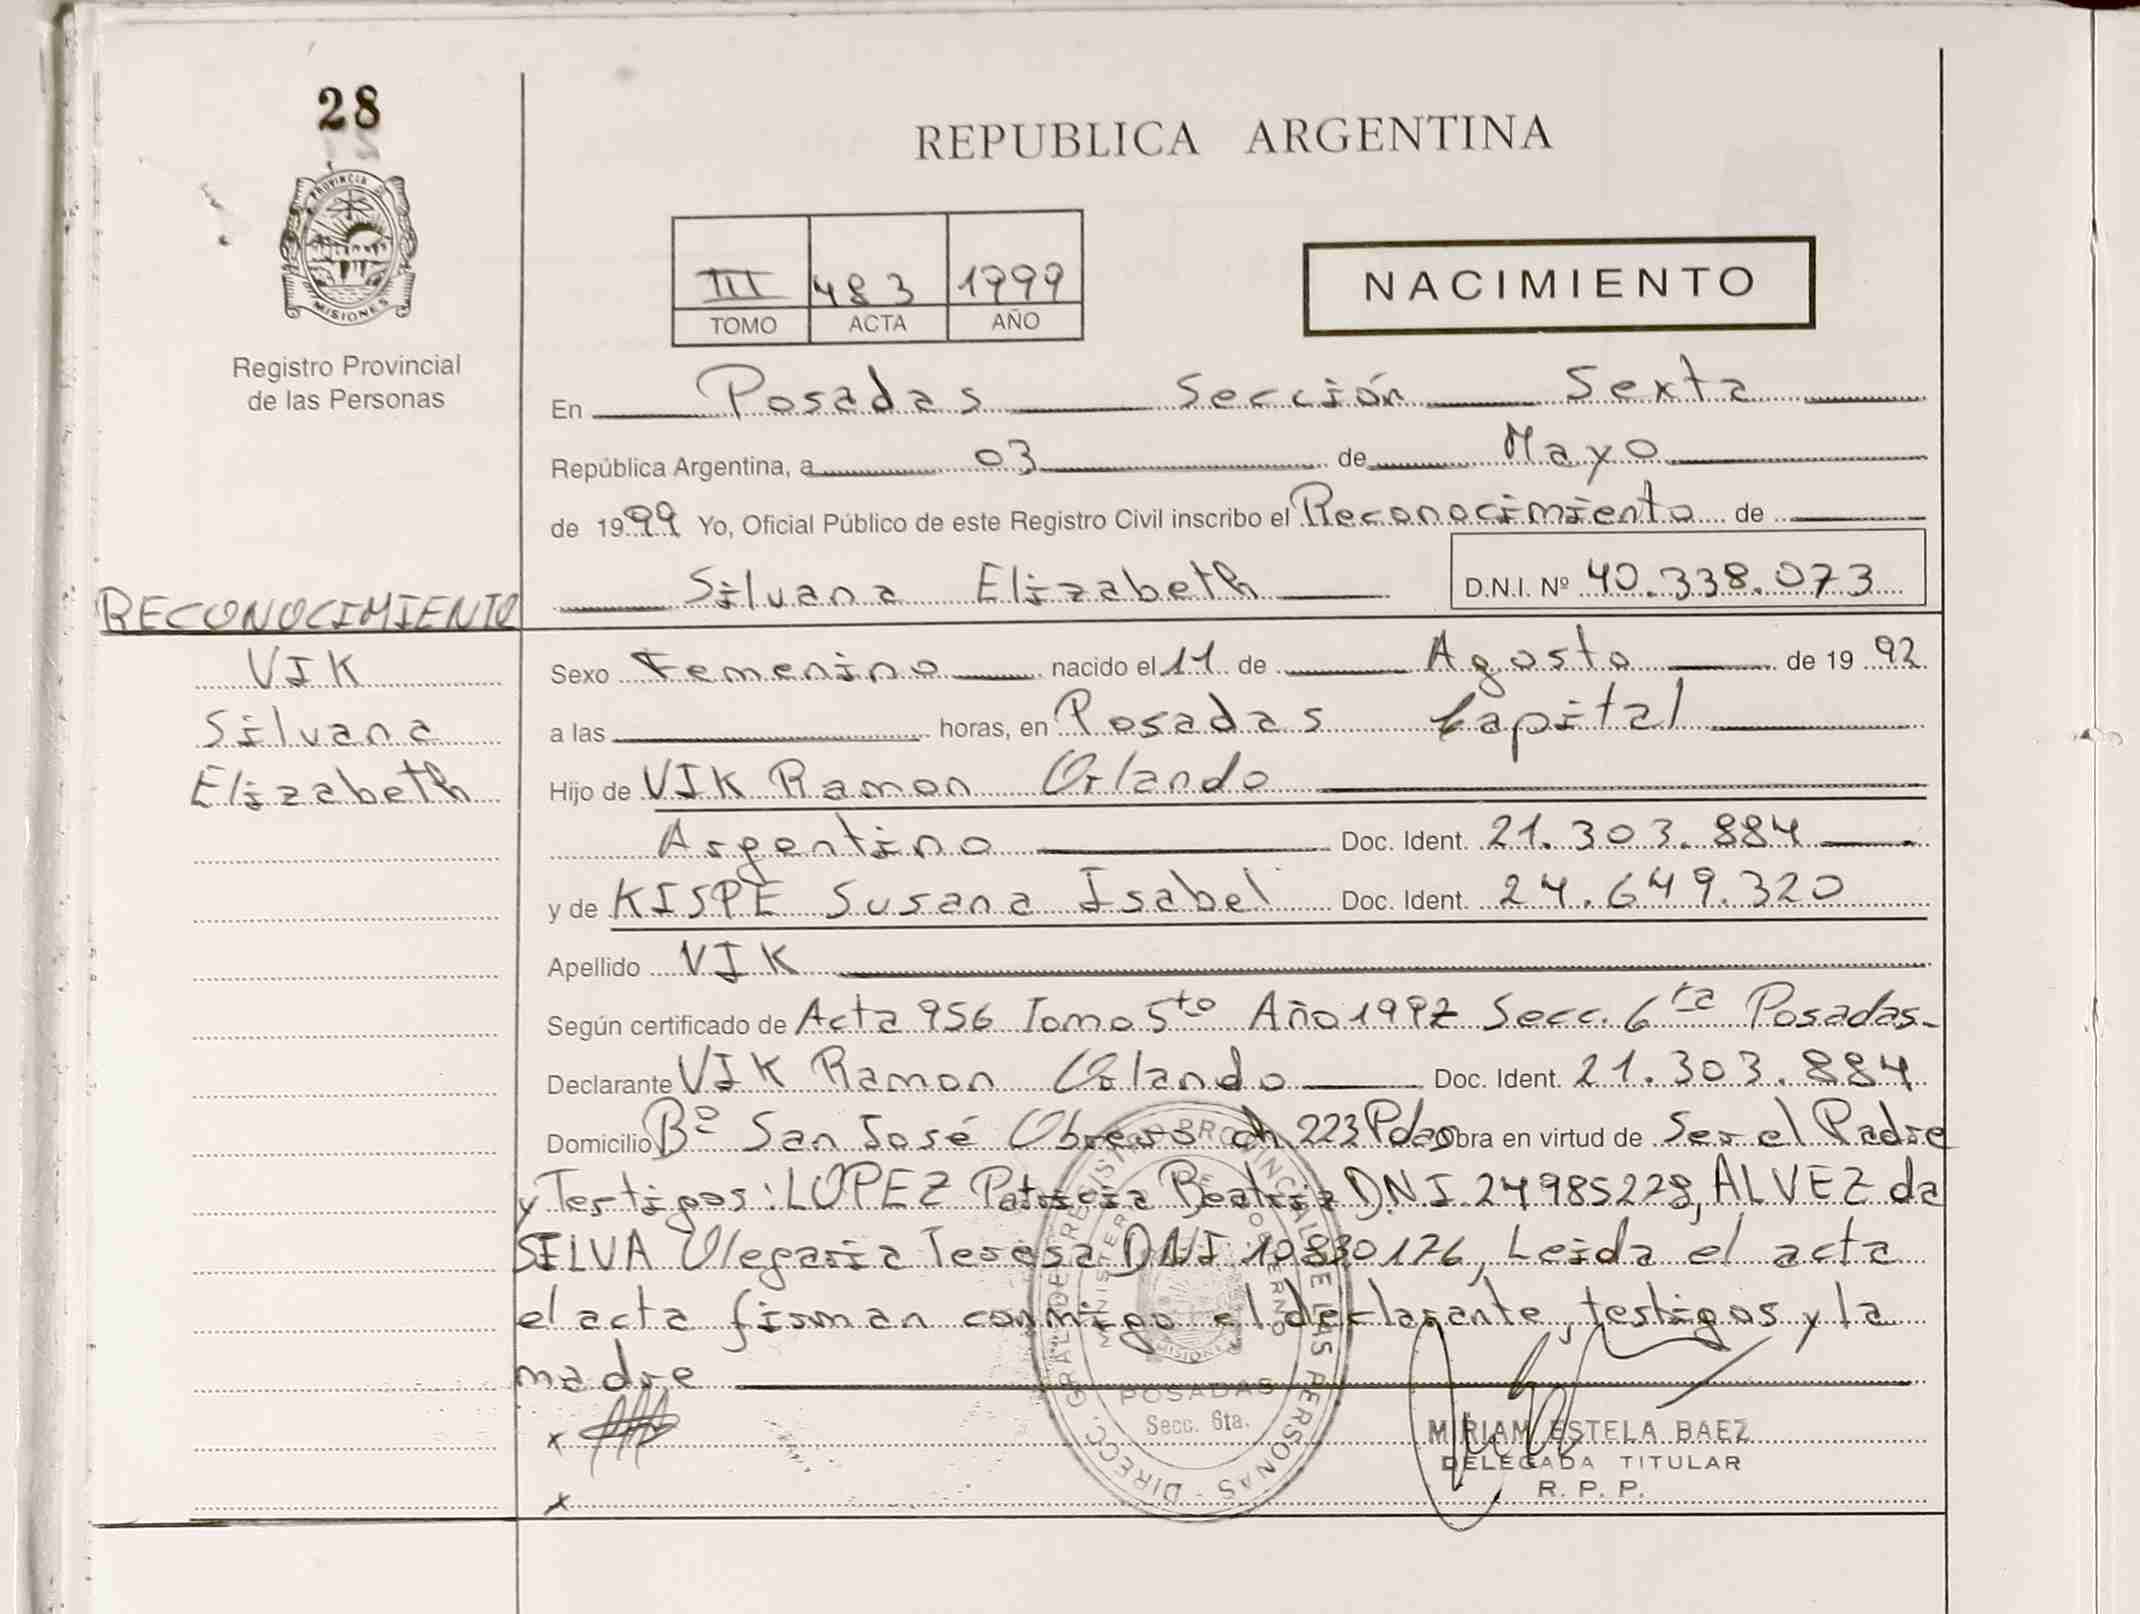 28
PROVINCIA D
MISIONES
Registro Provincial
de las Personas
REPUBLICA ARGENTINA
III 483 1999
TOMO ACTA AÑO
NACIMIENTO
En Posadas Sección Sexta
República Argentina, a 03 de Mayo
de 1999 Yo, Oficial Público de este Registro Civil inscribo el Reconocimiento de
Silvana Elizabeth D.N.I. Nº 40.338.073
RECONOCIMIENTO
VIK
Silvana
Elizabeth
Sexo Femenino nacido el 11 de Agosto de 1992
a las horas, en Posadas Capital
Hijo de VIK Ramon Orlando
Argentino Doc. Ident. 21.303.884
y de KISPE Susana Isabel Doc. Ident. 24.649.320
Apellido VIK
Según certificado de Acta 956 Tomo 5to Año 1992 Secc. 6ta Posadas-
Declarante VIK Ramon Orlando Doc. Ident. 21.303.884
Domicilio Bº San José Obrero ch 223 Pdas obra en virtud de Ser el Padre
y Testigos: LOPEZ Patricia Beatriz DNI 24985228, ALVEZ da
SILVA Olegaria Teresa DNI 10830176, Leida el acta
el acta firman conmigo el declarante, testigos y la
madre
x
x
DIRECC. GRAL DE REGISTRO PROVINCIAL DE LAS PERSONAS
MINISTERIO DE GOBIERNO
MISIONES
POSADAS
Secc. 6ta.
MIRIAM ESTELA BAEZ
DELEGADA TITULAR
R. P. P.